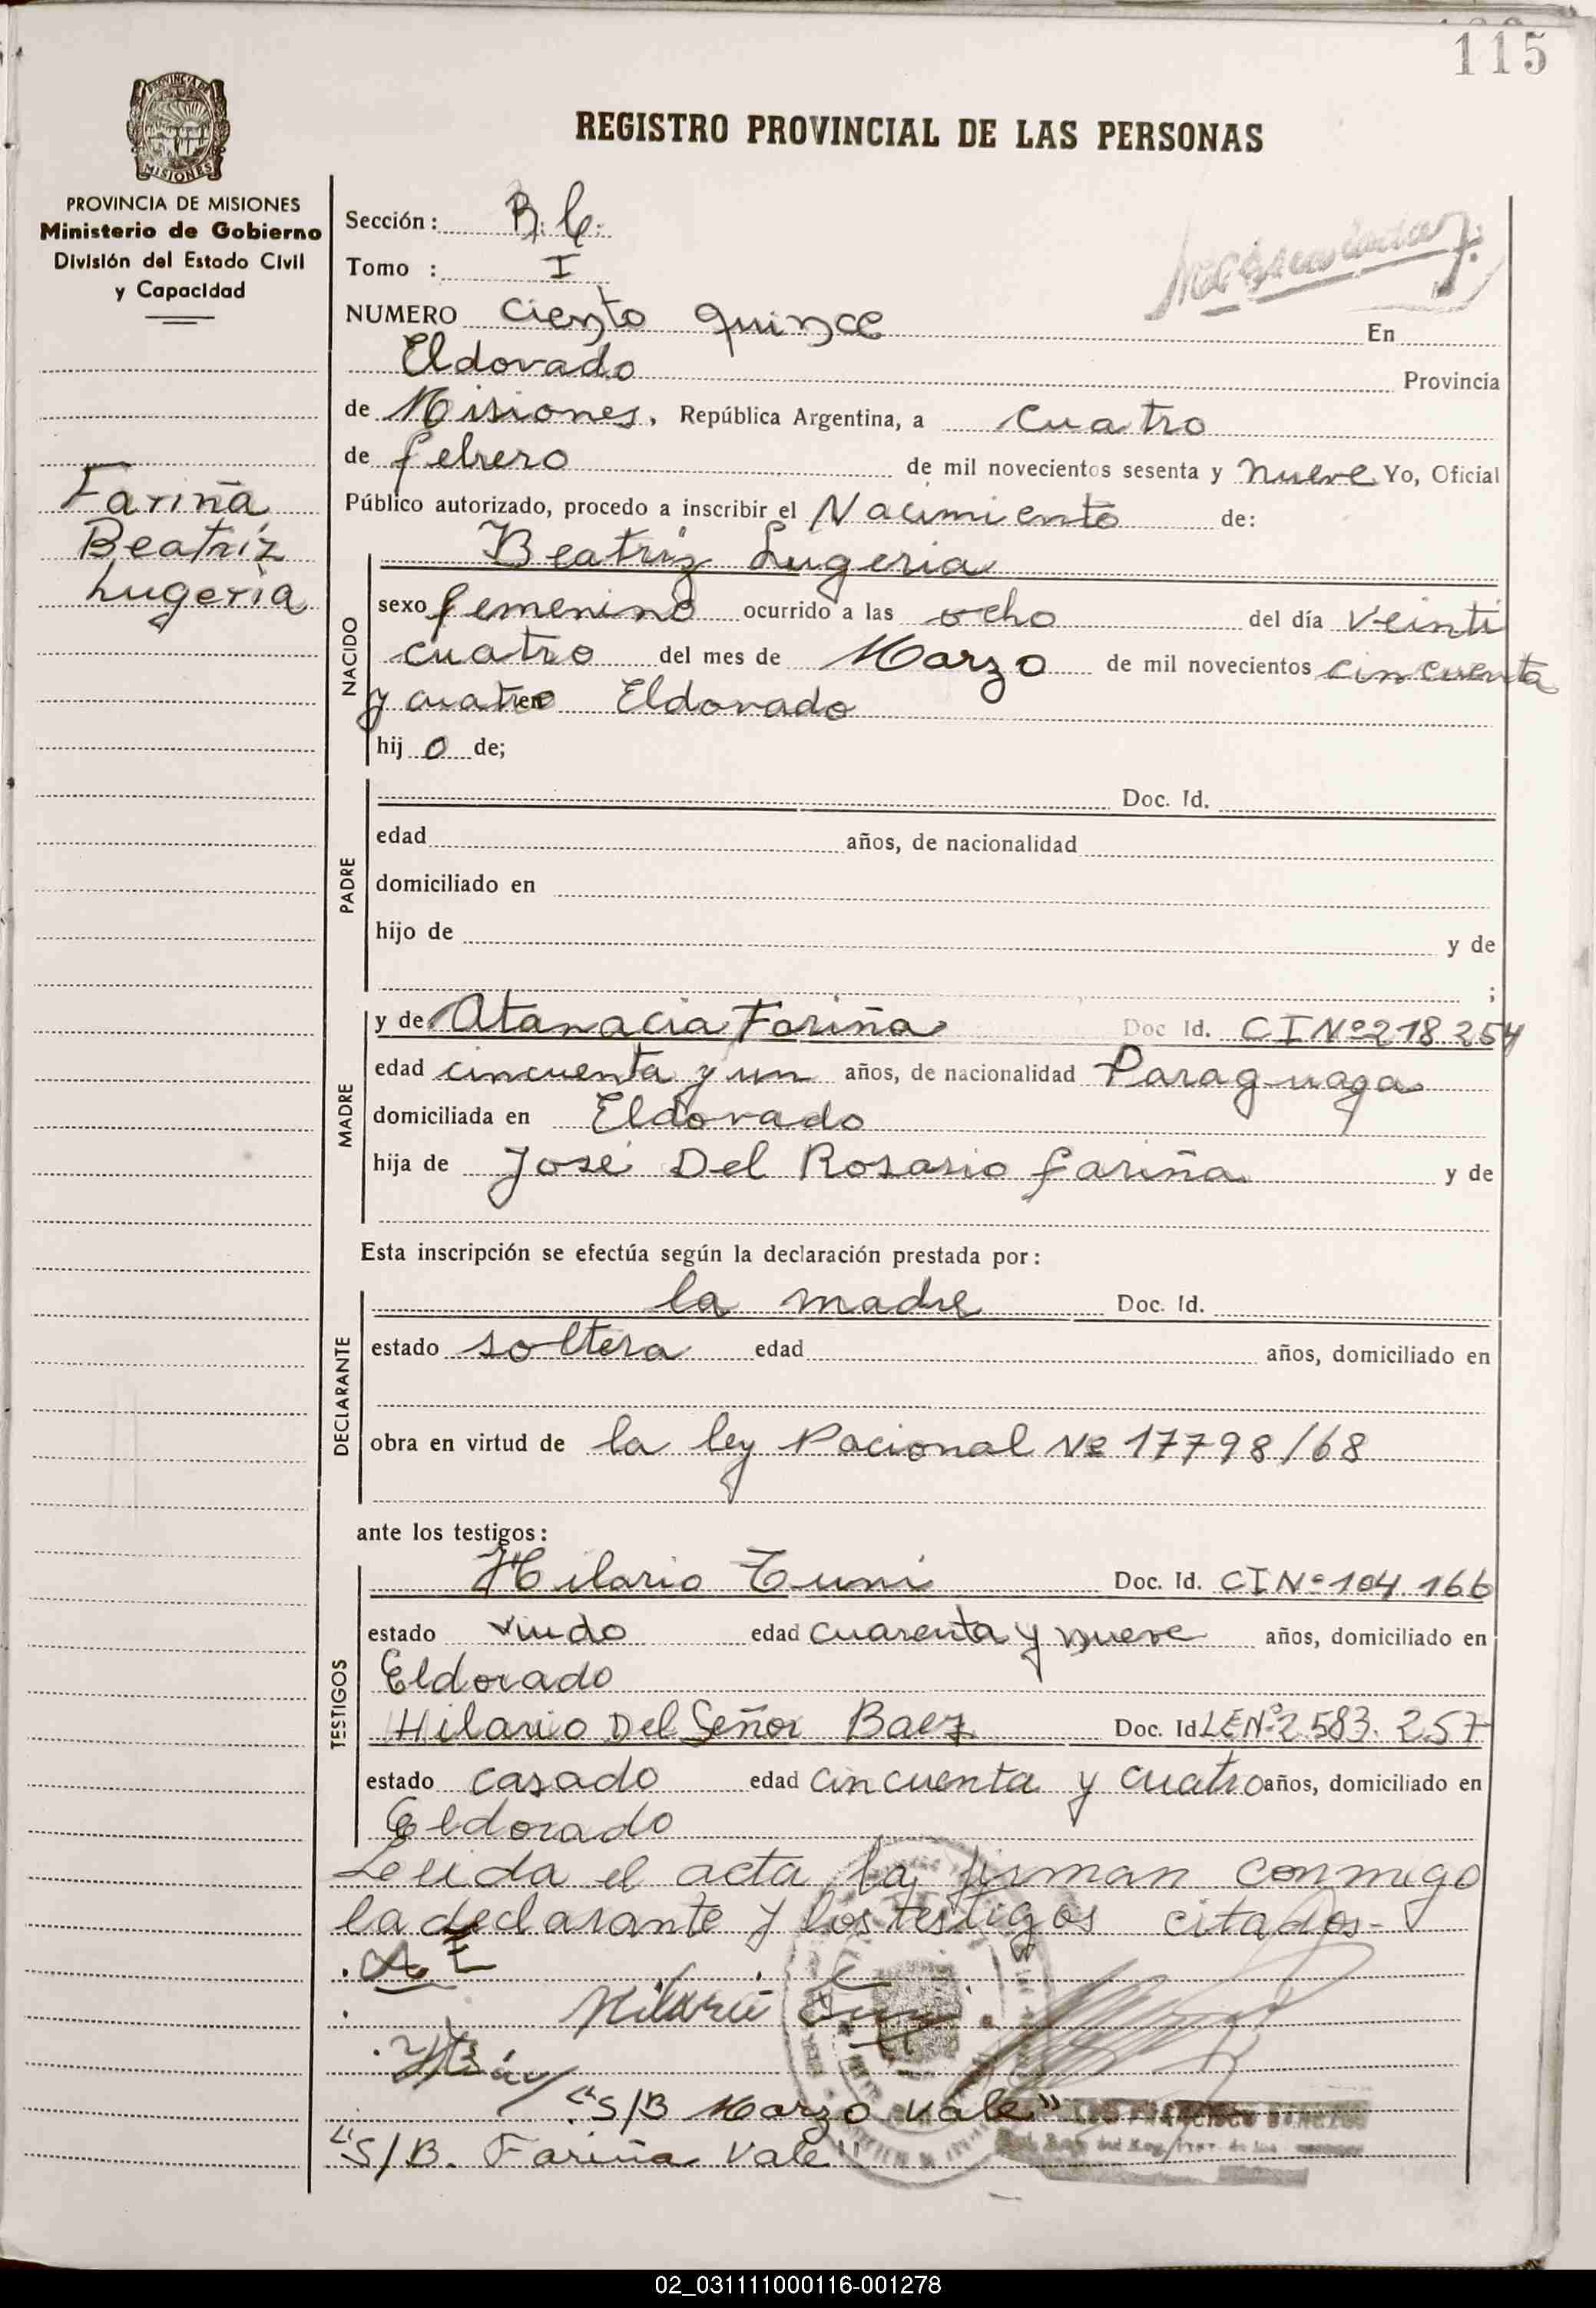 115
PROVINCIA DE
MISIONES
REGISTRO PROVINCIAL DE LAS PERSONAS
PROVINCIA DE MISIONES
Ministerio de Gobierno
División del Estado Civil
y Capacidad
Sección:
Tomo : I
NUMERO Ciento quince En
Eldorado Provincia
de Misiones, República Argentina, a Cuatro
de febrero de mil novecientos sesenta y nueve Yo, Oficial
Público autorizado, procedo a inscribir el Nacimiento de:
Fariña
Beatriz
Lugeria
Beatriz Lugeria
NACIDO
sexo femenino ocurrido a las ocho del día Veinti
cuatro del mes de Marzo de mil novecientos cincuenta
y cuatro en Eldorado
hij o de;
PADRE
Doc. Id.
edad años, de nacionalidad
domiciliado en
hijo de y de
;
MADRE
y de Atanacia Fariña Doc Id. CI Nº 218 254
edad cincuenta y un años, de nacionalidad Paraguaya
domiciliada en Eldorado
hija de José Del Rosario fariña y de
Esta inscripción se efectúa según la declaración prestada por:
DECLARANTE
la madre Doc. Id.
estado soltera edad años, domiciliado en
obra en virtud de la ley Nacional Nº 17798/68
ante los testigos:
TESTIGOS
Hilario Tuni Doc. Id. CI Nº 104 166
estado viudo edad cuarenta y nueve años, domiciliado en
Eldorado
Hilario Del Señor Baez Doc. Id LE Nº 2.583. 257
estado casado edad cincuenta y cuatro años, domiciliado en
Eldorado
Leida el acta la firman conmigo
la declarante y los testigos citados-
"S/B Marzo Vale"
"S/B. Fariña Vale"
02_031111000116-001278